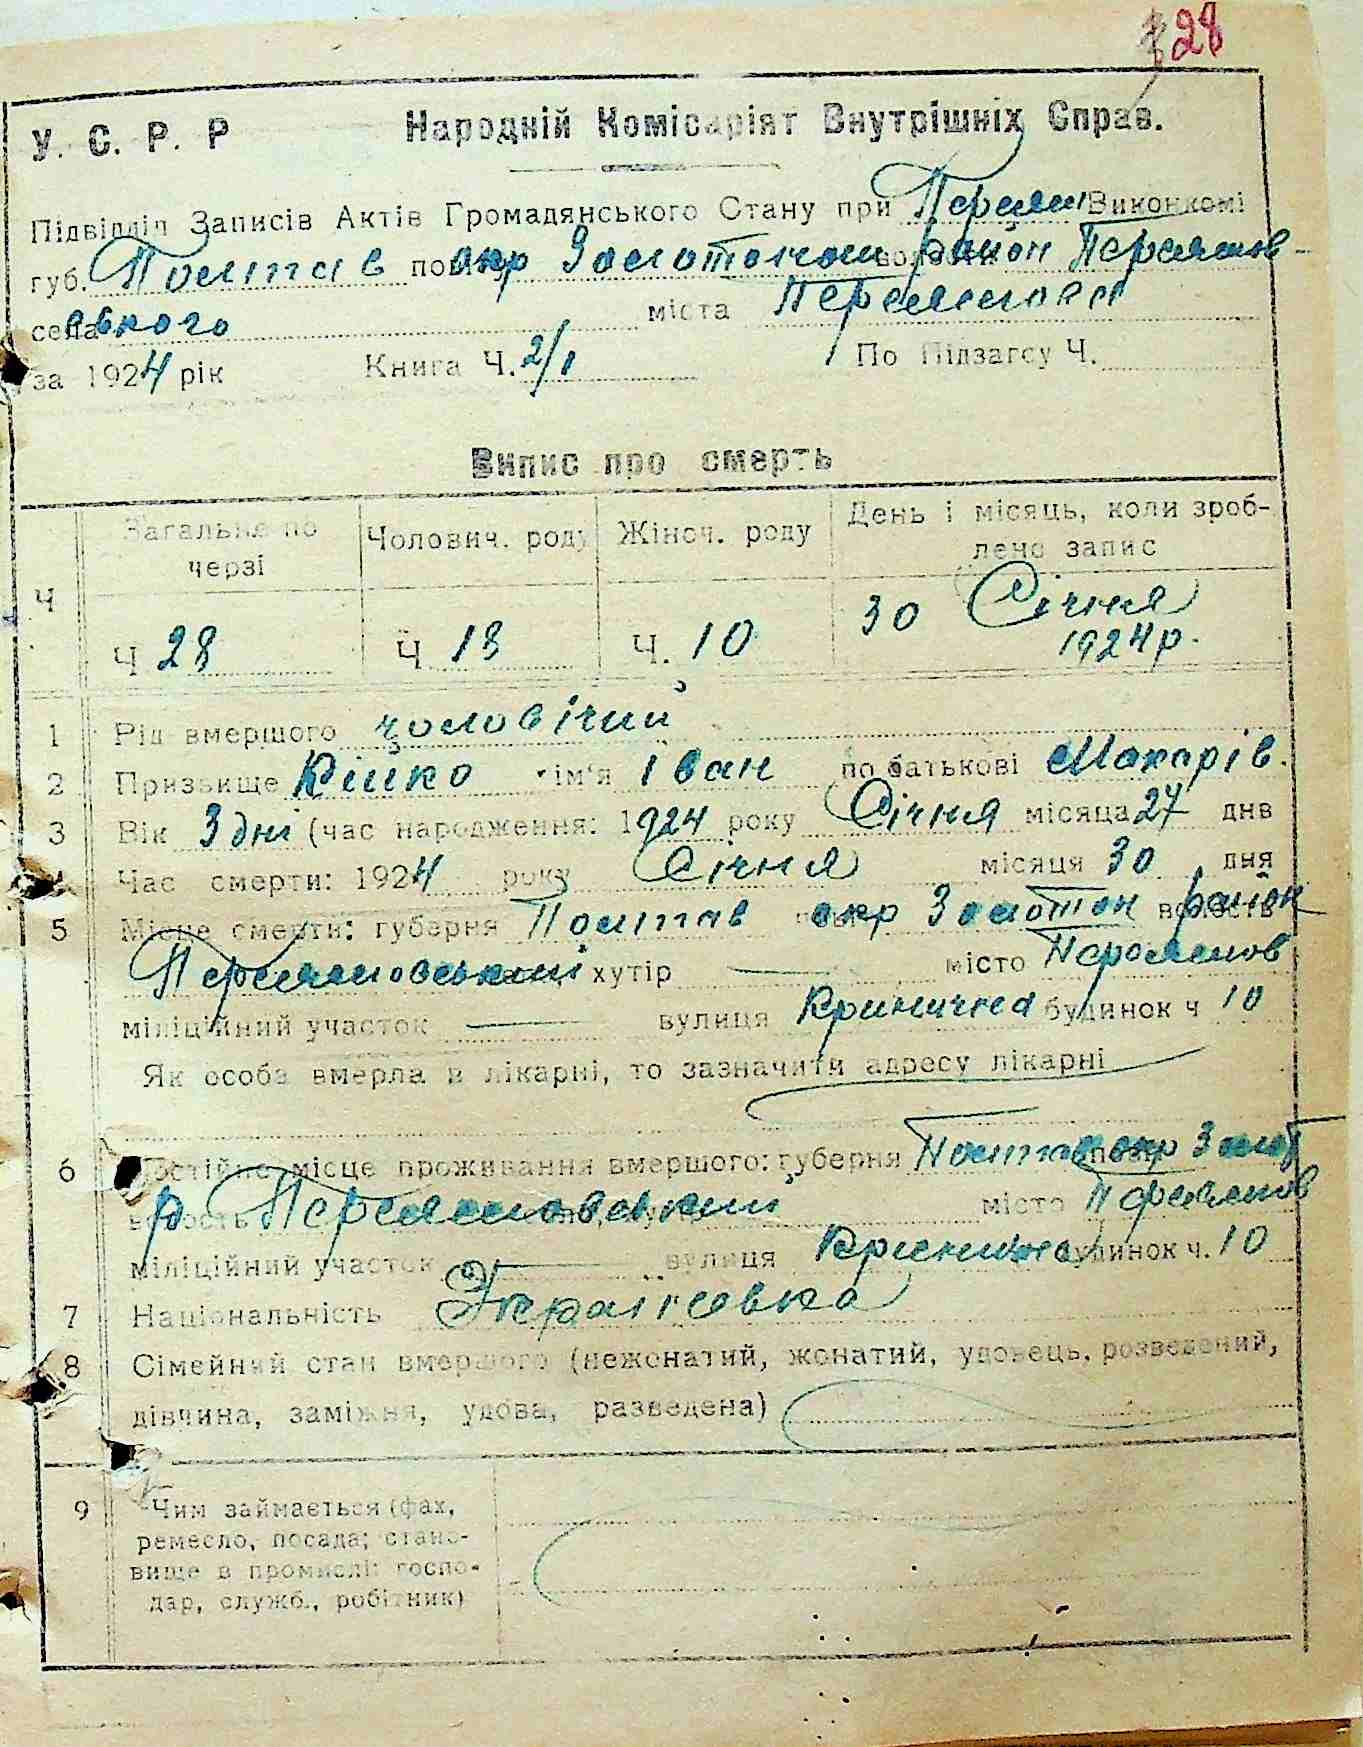 28
У. С. Р. Р Народній Комісаріят Внутрішніх Справ.
Підвідділ Записів Актів Громадянського Стану при Переясл Виконкомі
губ. Полтав окр Золотоном район Переяслов-
села ського міста Переяслова
за 1924 рік Книга Ч. 2/1 По Підзагсу Ч.
Випис про смерть
Загальне по черзі Чолович. роду Жіноч. роду День і місяць, коли зроб-
лено запис
Ч 28 Ч 18 Ч. 10 30 Січня
1924 р.
1 Рід вмершого чоловічий
2 Призвище Кійко ім'я Іван по батькові Макарів.
3 Вік 3 дні (час народження: 1924 року Січня місяца 27 днв
Час смерти: 1924 року Січня місяця 30 дня
5 Місце смерти: губерня Полтав окр Золотон район волость
Переяловський хутір місто Переяслов
міліційний участок вулиця Кринична будинок ч 10
Як особа вмерла в лікарні, то зазначити адресу лікарні
6 Постійне місце проживання вмершого: губерня Полтав окр Золот
волость р Переяловський місто Переяслов
міліційний участок вулиця Кринична будинок ч. 10
7 Національність Українська
8 Сімейний стан вмершого (нежонатий, жонатий, удовець, розведений,
дівчина, заміжня, удова, разведена)
9 Чим займається (фах,
ремесло, посада; стано-
вище в промислі: госпо-
дар, служб., робітник)